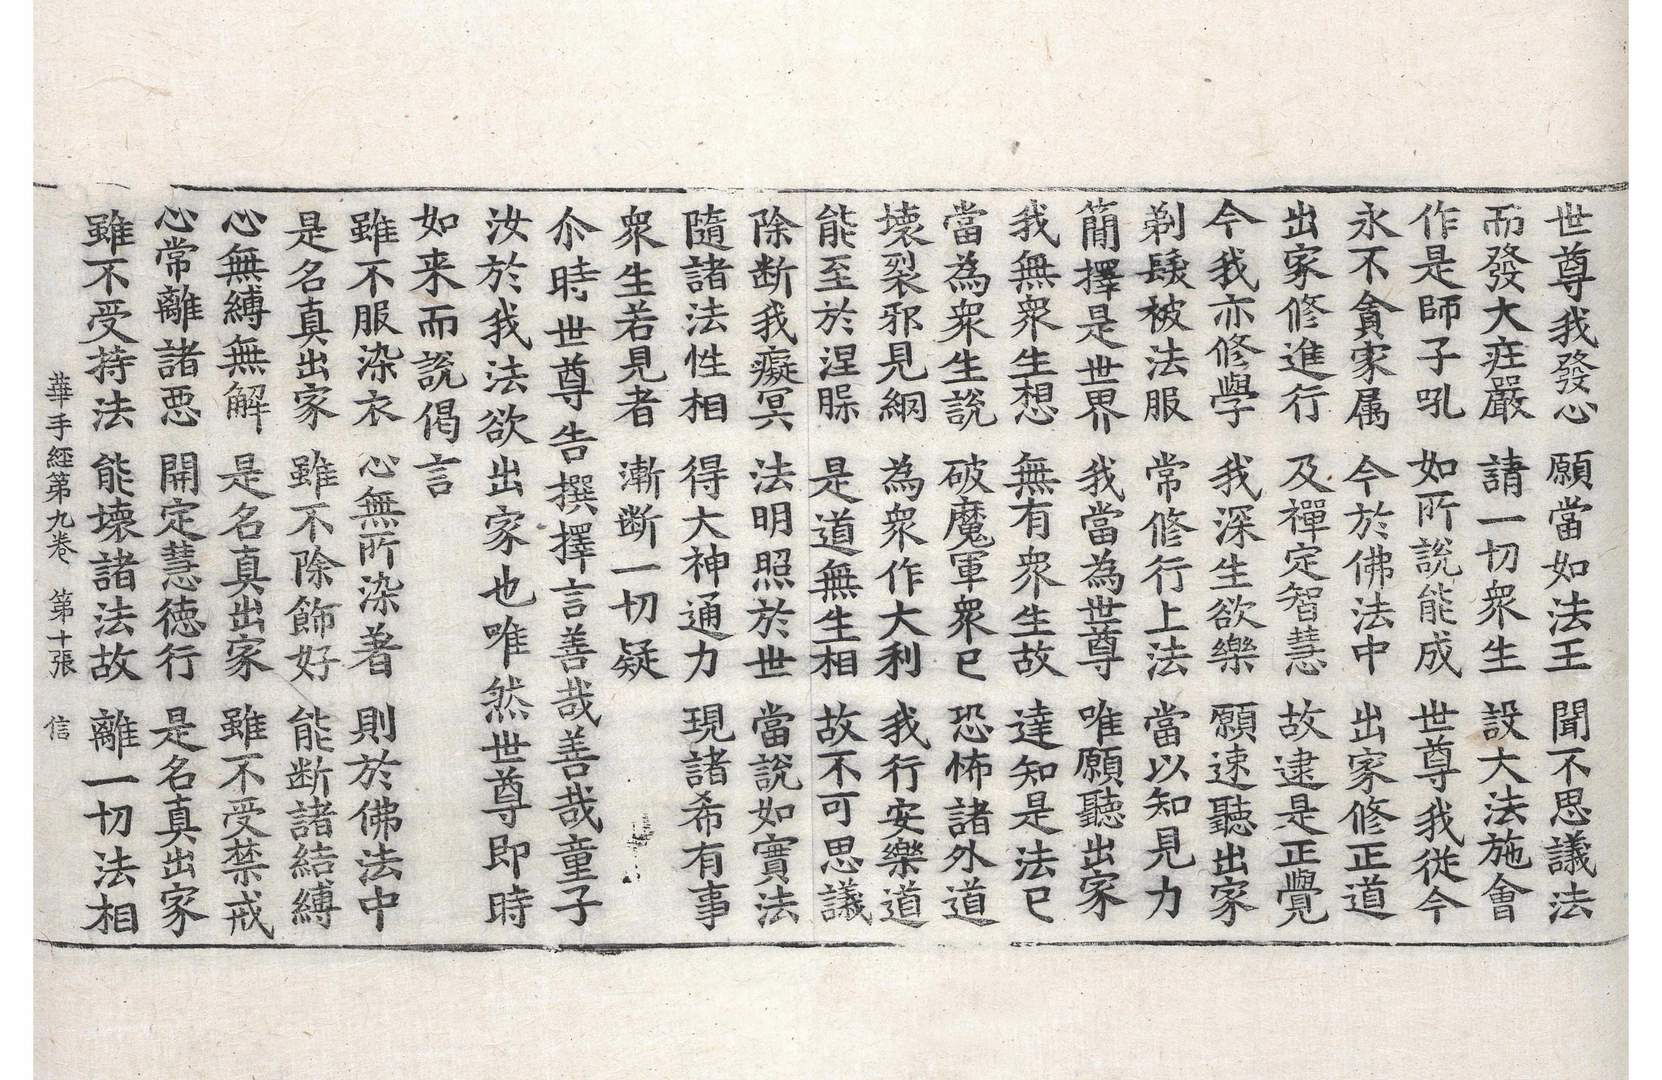 世尊我發心 願當如法王 聞不思議法
而發大庄嚴 請一切衆生 設大法施會
作是師子吼 如所說能成 世尊我從今
永不貪家属 今於佛法中 出家修正道
出家修進行 及禪定智慧 故逮是正覺
今我亦修學 我深生欲樂 願速聽出家
剃髮被法服 常修行上法 當以知見力
簡擇是世界 我當為世尊 唯願聽出家
我無衆生想 無有衆生故 達知是法已
當為衆生說 破魔軍衆已 恐怖諸外道
壞裂邪見網 為衆作大利 我行安樂道
能至於涅槃 是道無生相 故不可思議
除断我癡冥 法明照於世 當說如實法
隨諸法性相 得大神通力 現諸希有事
衆生若見者 漸断一切疑
尒時世尊告撰擇言善哉善哉童子
汝於我法欲出家也唯然世尊即時
如来而說偈言
雖不服染衣 心無所染著 則於佛法中
是名真出家 雖不除飾好 能断諸結縛
心無縛無解 是名真出家 雖不受禁戒
心常離諸惡 開定慧徳行 是名真出家
雖不受持法 能壞諸法故 離一切法相
華手經第九卷 第十張 信